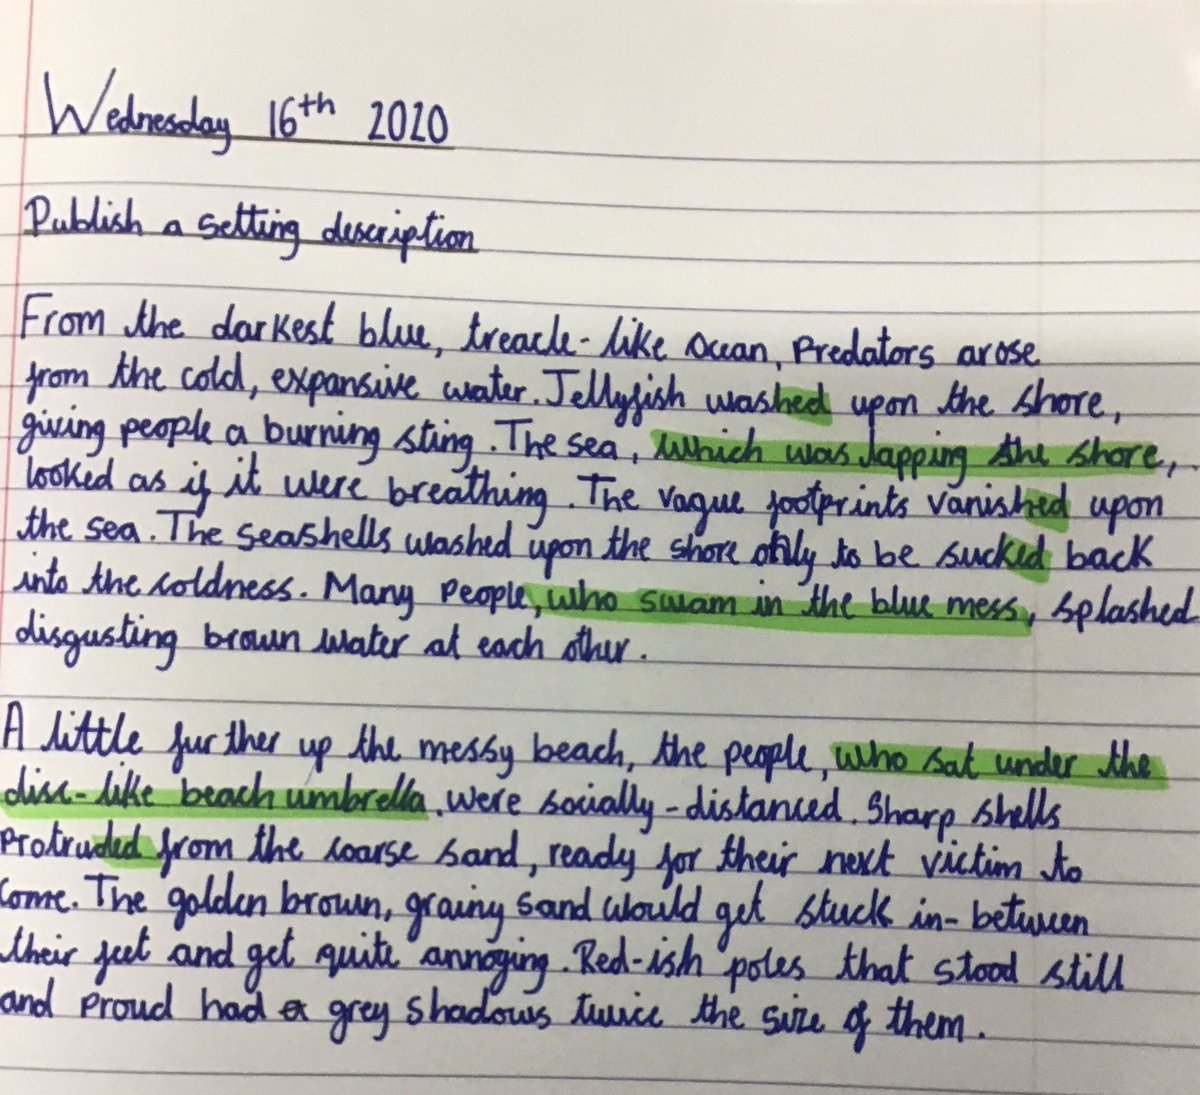 Wednesday 16th 2020
Publish a setting description
From the darkest blue, treacle-like ocean, predators arose
from the cold, expansive water. Jellyfish washed upon the shore,
giving people a burning sting. The sea, which was lapping the shore,
looked as if it were breathing. The vague footprints vanished upon
the sea. The seashells washed upon the shore only to be sucked back
into the coldness. Many people, who swam in the blue mess, splashed
disgusting brown water at each other.
A little further up the messy beach, the people, who sat under the
disc-like beach umbrella, were socially-distanced. Sharp shells
protruded from the coarse sand, ready for their next victim to
come. The golden brown, grainy sand would get stuck in-between
their feet and get quite annoying. Red-ish poles that stood still
and proud had a grey shadows twice the size of them.